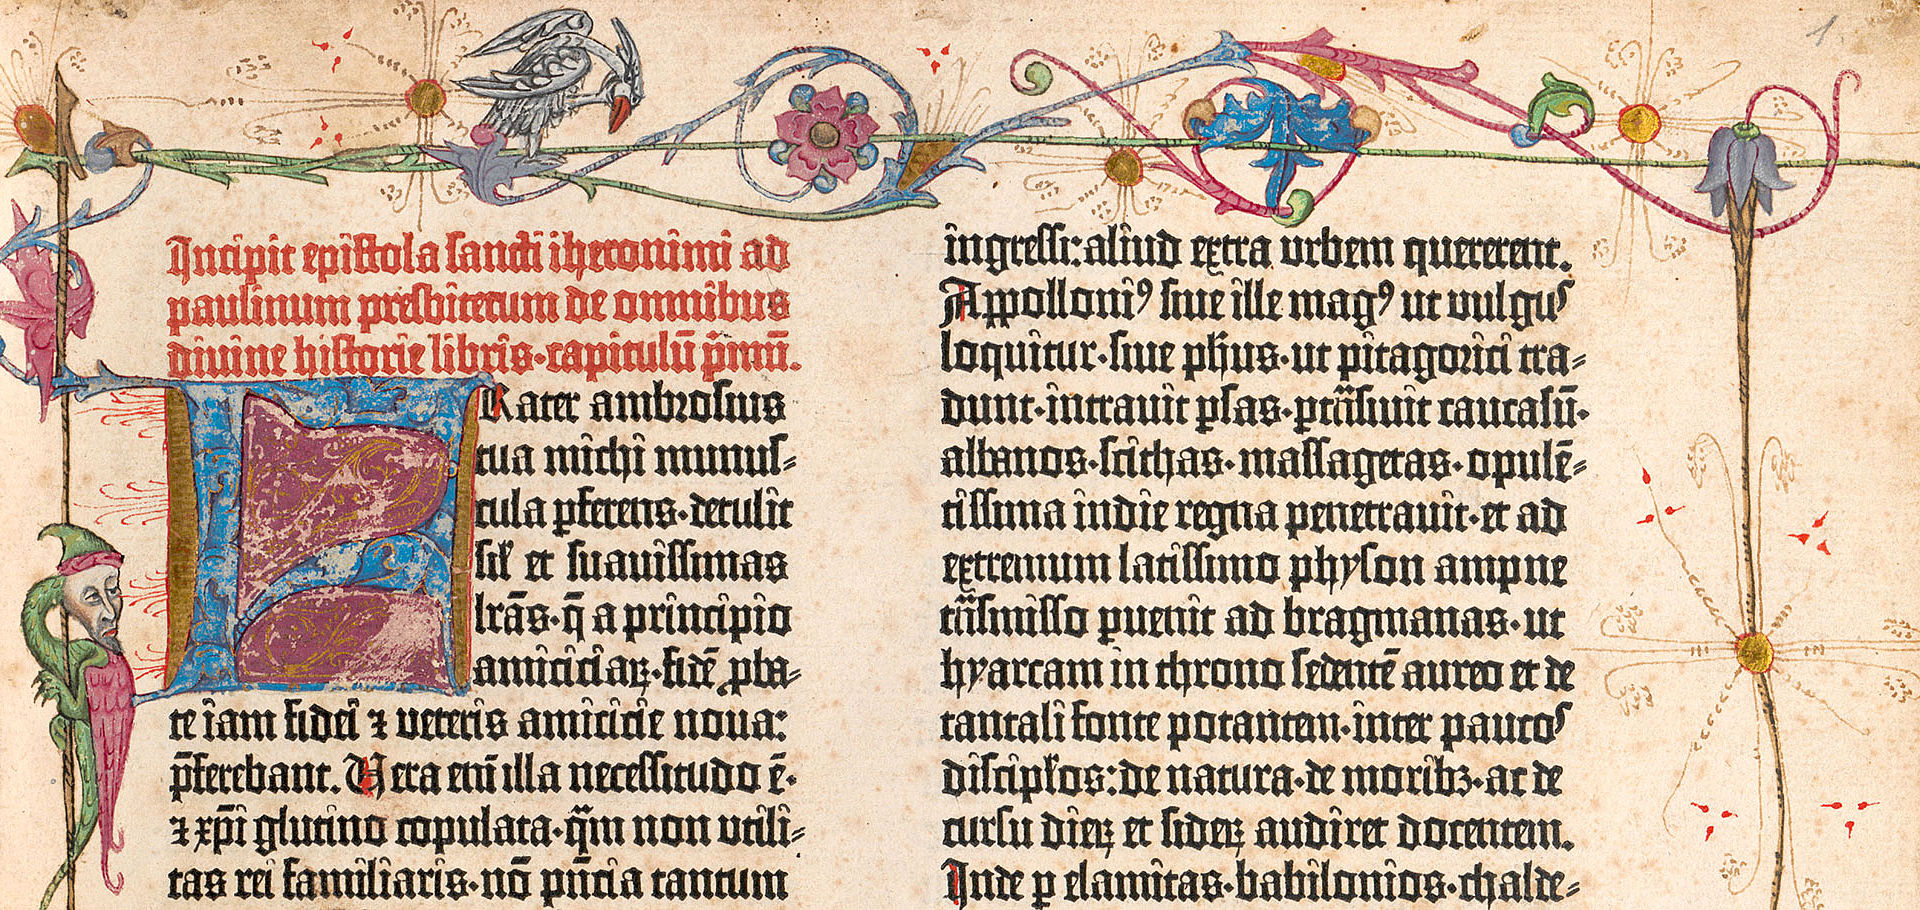 1
Incipit epistola sancti iheronimi ad
paulinum presbiterum de omnibus
divine historie libris·capitulū p̄mū.
FRater ambrosius
tua michi munus⸗
cula ꝑferens·detulit
sil̕ et suavissimas
lr̄as·q̄ a principio
amiciciaꝝ·fidē ꝓba⸗
te iam fidei ⁊ veteris amicicie nova:
p̄ferebant. Vera em̄ illa necessitudo ē·
⁊ xp̄i glutino copulata·qᷓm non utili⸗
tas rei familiaris·nō pn̄cia tantum
ingressi: aliud extra urbem quererent.
Appolloniꝰ sive ille magꝰ ut vulgus
loquitur·sive ph̄us·ut pitagorici tra⸗
dunt·intravit ꝑsas·ꝑtrāsivit caucasū·
albanos·scithas·massagetas·opulē⸗
tissima indie regna penetravit·et ad
extremum latissimo physon ampne
trāsmisso ꝑvenit ad bragmanas·ut
hyarcam in throno sedentē aureo et de
tantali fonte potantem·inter paucos
discipl̕os: de natura·de moribꝫ·ac de
cursu dieꝝ et sideꝝ audiret docentem.
Inde ꝑ elamitas·babilonios·chalde⸗